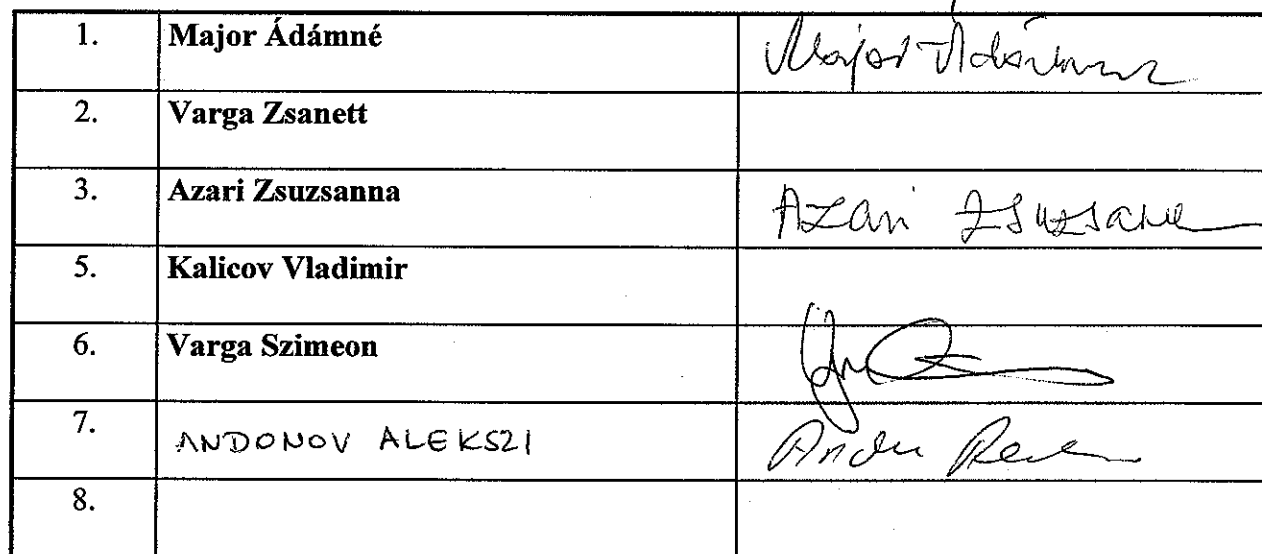 1. Major Ádámné Major Ádámné
2. Varga Zsanett
3. Azari Zsuzsanna Azari Zsuzsanna
5. Kalicov Vladimir
6. Varga Szimeon
7. ANDONOV ALEKSZI
8.